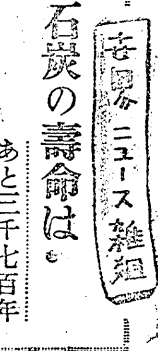 世界ニュース雑爼
石炭の壽命は
あと三千七百年